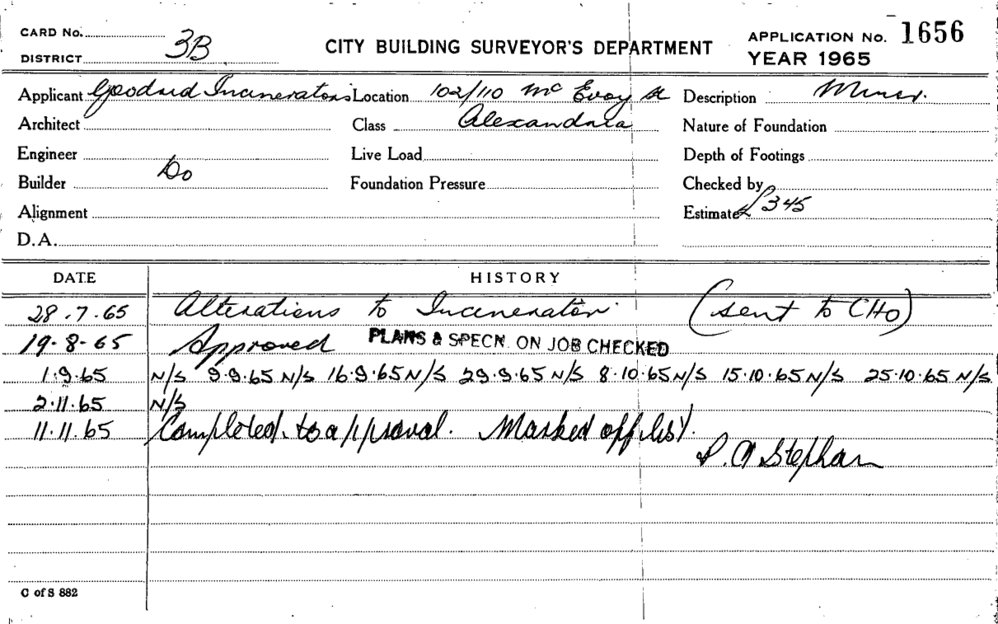 CARD No.
DISTRICT 3B
CITY BUILDING SURVEYOR'S DEPARTMENT
APPLICATION No. 1656
YEAR 1965
Applicant Goodard Incinerators Location 102/110 Mc Evoy St Description Minor.
Architect Class Alexandria Nature of Foundation
Engineer Live Load Depth of Footings
Builder Do Foundation Pressure Checked by
Alignment Estimate £345
D.A.
DATE HISTORY
28.7.65 Alterations to Incinerator (sent to CHO)
19-8-65 Approved PLANS & SPECN. ON JOB CHECKED
1.9.65 N/S 9.9.65 N/S 16.9.65 N/S 29.9.65 N/S 8.10.65 N/S 15.10.65 N/S 25.10.65 N/S
2.11.65 N/S
11.11.65 Completed to approval. Marked off list.
P. A Stephan
C of S 882